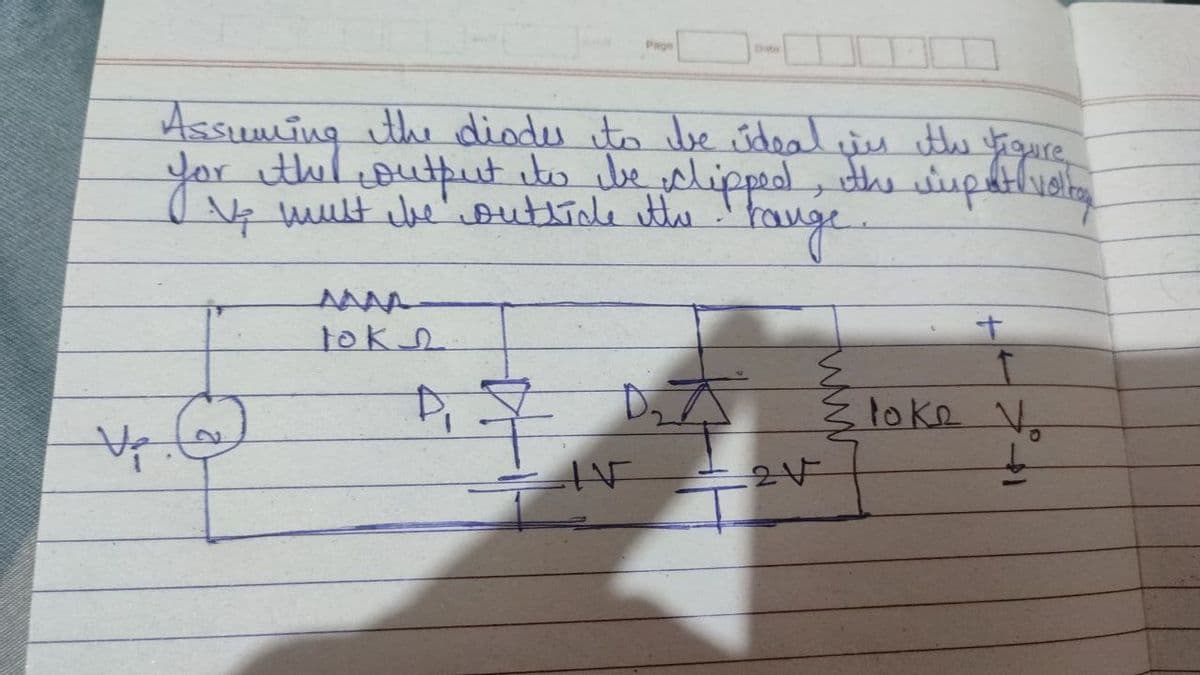 Page Date
Assuming the diodes to be ideal in the figure,
for the output to be clipped, the input voltage
Vi must be outside the range.
10KΩ
+
D1 D2 10KΩ Vo
Vi ~
1V 2V
-